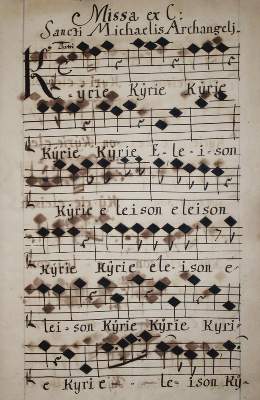 Missa ex C:
Sancti Michaelis Archangelj.
Kyrie Kÿrie Kÿrie
Kÿrie Kÿrie E-le-i-son
Kyrie e leison eleison
Kÿrie Kÿrie ele-ison e-
lei-son Kÿrie Kÿrie Kyri-
e Kyrie - - le-ison Kÿ-